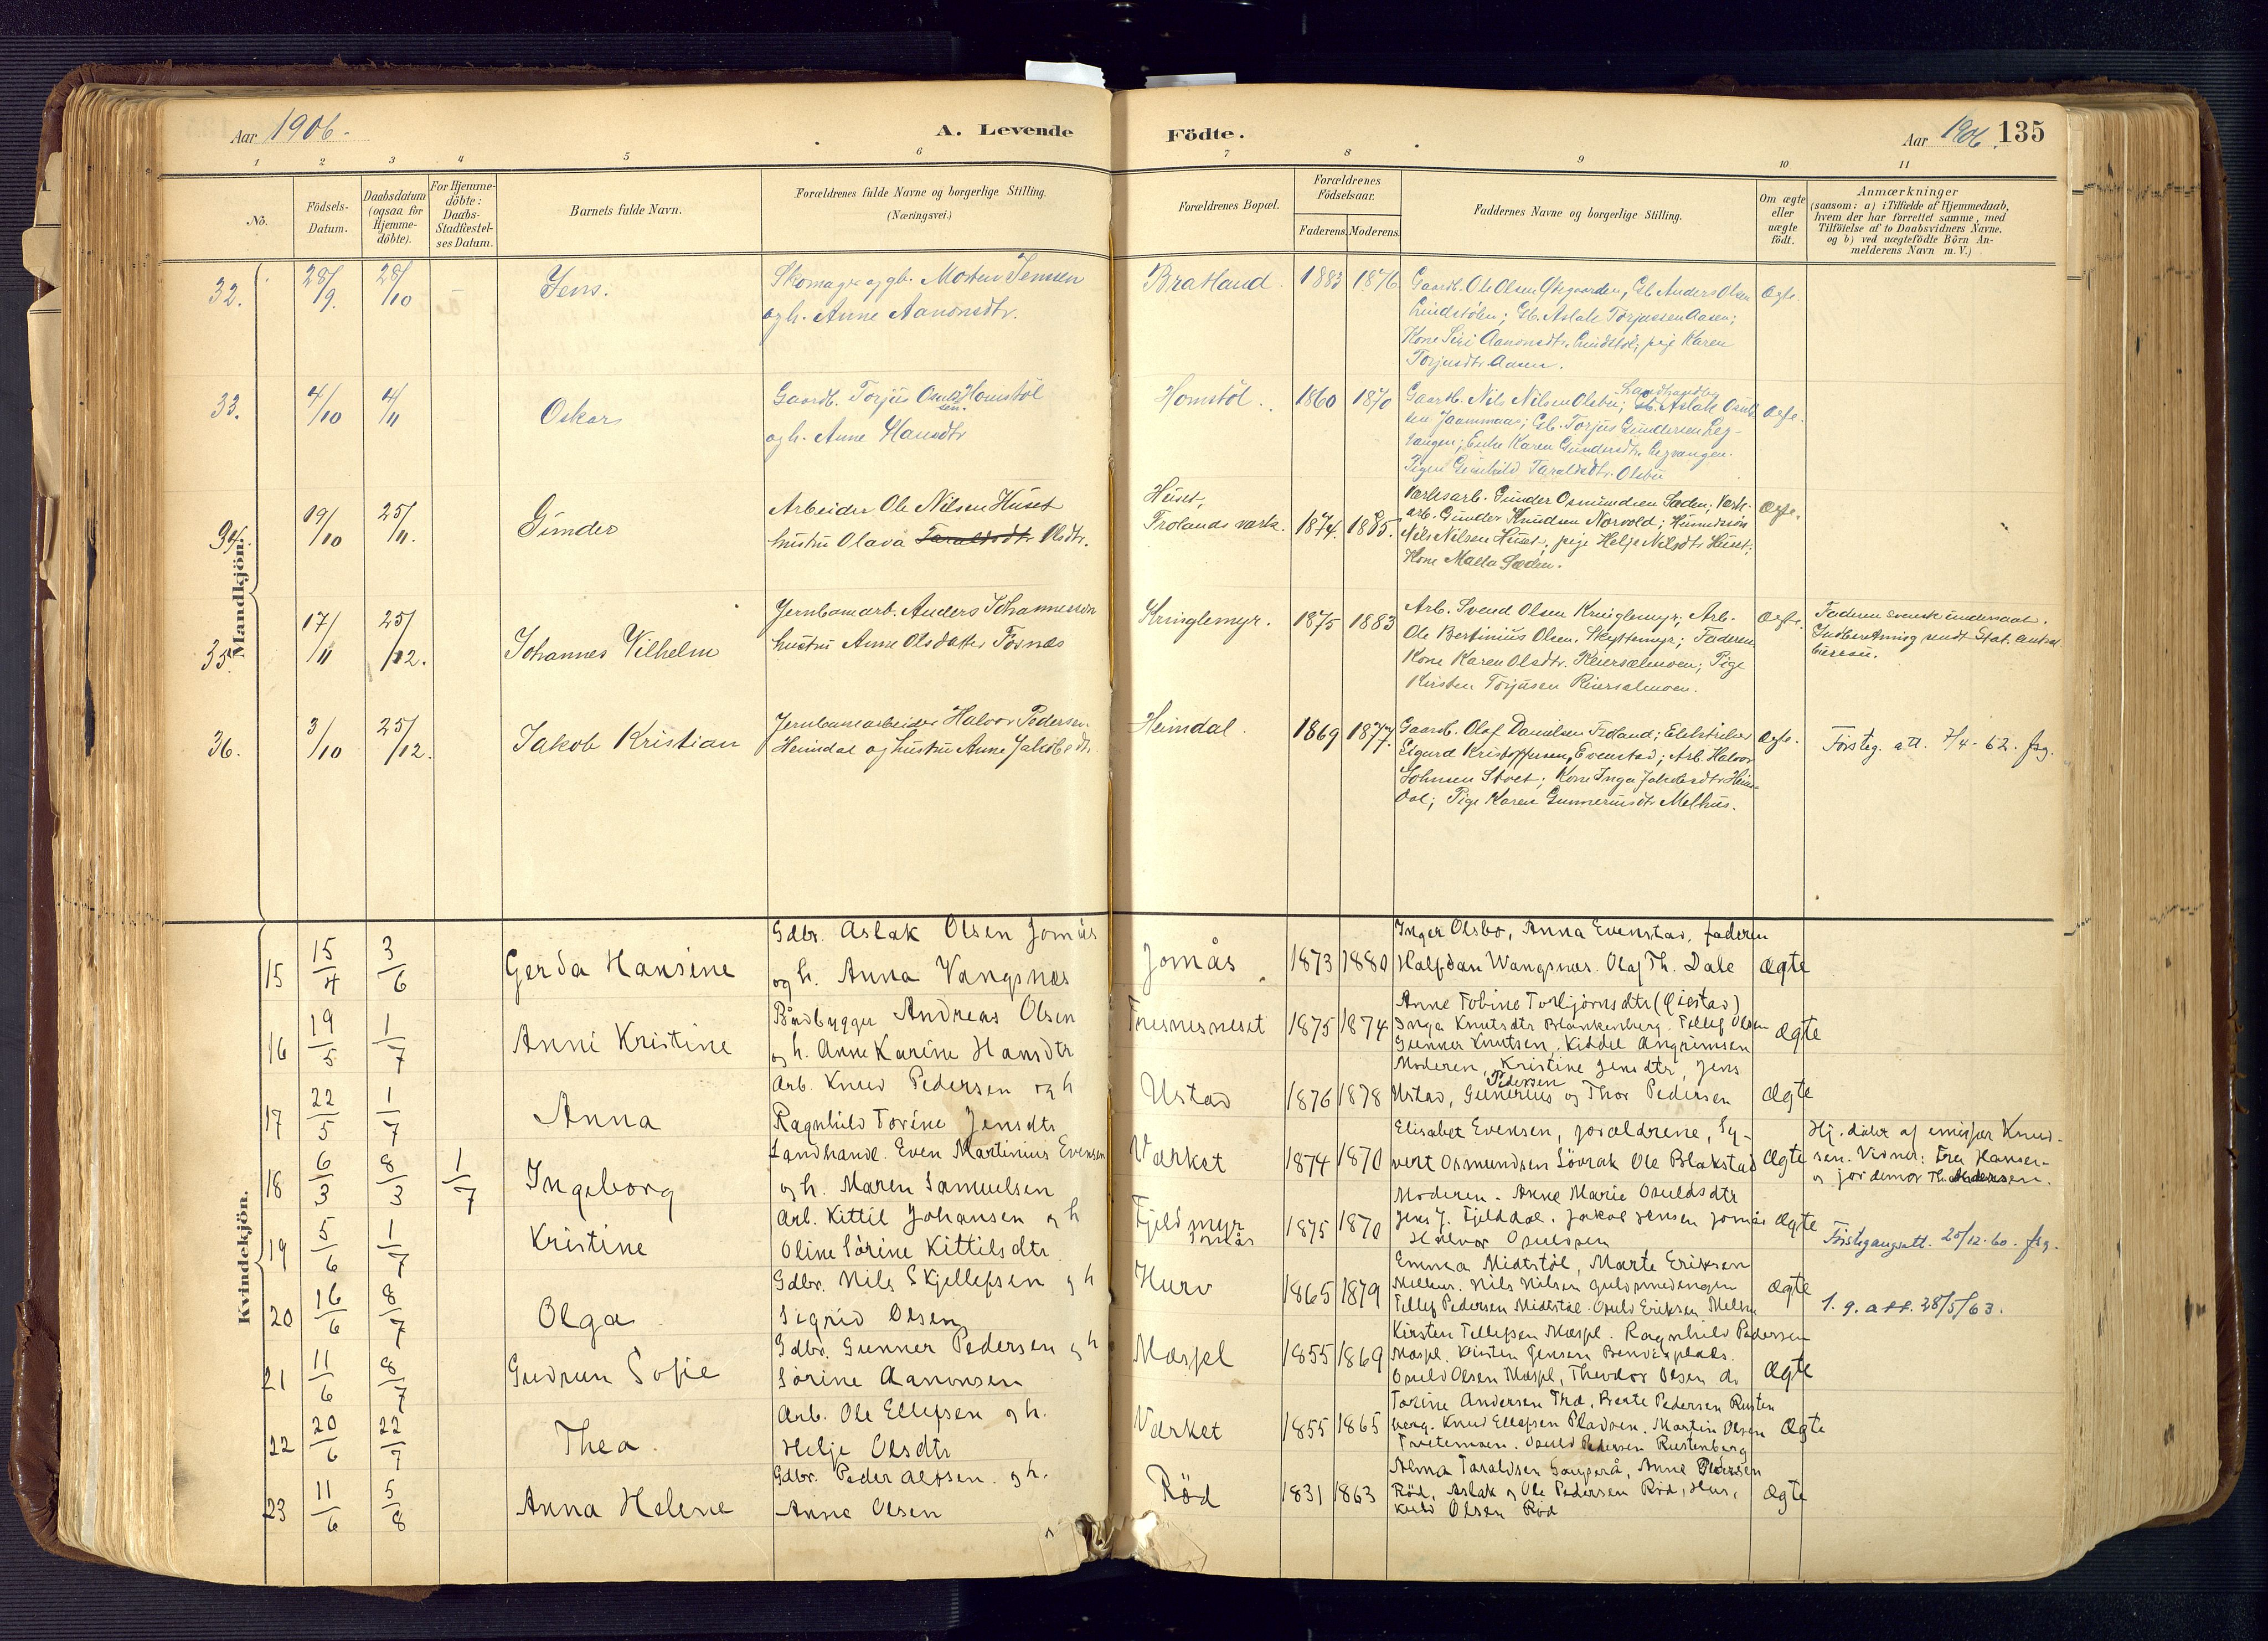 Aar 1906.
A. Levende
Födte.
Aar 1906. 135
1 2 3 4 5 6 7 8 9 10 11
No.
Födsels-
Datum.
Daabsdatum
(ogsaa for
Hjemme-
döbte).
For Hjemme-
döbte:
Daabs-
Stadfæstel-
ses Datum.
Barnets fulde Navn.
Forældrenes fulde Navne og borgerlige Stilling.
(Næringsvei.)
Forældrenes Bopæl.
Forældrenes
Födselsaar.
Faderens. Moderens.
Faddernes Navne og borgerlige Stilling.
Om ægte
eller
uægte
födt.
Anmærkninger
(saasom: a) i Tilfælde af Hjemmedaab,
hvem der har forrettet samme, med
Tilföielse af to Daabsvidners Navne.
og b) ved uægtefödte Börn An-
melderens Navn m. V.)
Mandkjön.
32. 28/9. 28/10 Jens.
Skomager og gb. Morten Jensen
og h. Anne Aanonsdtr.
Bratland. 1883 1876
Gaardb. Ole Olsen, Gb. Anders Olsen
Lindstölen; Gb. Aslak Torjussen Aasen;
Kone Siri Aanonsdtr. Lindstöl, pige Karen
Torjusdtr. Aasen.
Ægte
33. 4/10 4/11 Oskar
Gaardb. Torjus Osuldsen Homstöl
og h. Anne Hansdtr
Homstöl. 1860 1870
Gaardb. Nils Nilsen Olsbu; Landhandler Aslak Osuld-
sen Jaammaas; Gb. Torjus Gundersen Leg-
vangen; Enke Karen Gundersdtr. Legvangen.
Pigen Gunhild Taraldsdtr. Olsbu
Ægte.
34. 19/10 25/11. Gunder
Arbeider Ole Nilsen Huset
hustru Olava Taraldsdtr Olsdtr.
Huset,
Frolands værk. 1874. 1885.
Værksarb. Gunder Osmundsen Sæden; Værk-
arb. Gunder Knudsen Norvold; Husmandssön
Nils Nilsen Huset; pige Helje Nilsdtr Huset;
Kone Malla Sæden.
Ægte.
35. 17/11 25/12. Johannes Vilhelm
Jernbanearb. Anders Johannessen
hustru Anne Olsdatter Fösnæs
Kringlemyr. 1875 1883
Arb. Svend Olsen Kringlemyr; Arb.
Ole Bertinius Olsen, Skyttemyr; Faderen
Kone Karen Olsdtr. Reiersælmoen; Pige
Kirsten Torjusen Reierselmoen.
Ægte.
Faderen svensk undersaat.
Indberetning sendt Stat. Central
bureau.
36. 3/10 25/12. Jakob Kristian
Jernbanearbeider Halvor Pedersen
Heimdal og hustru Anne Jakobsdtr.
Heimdal. 1869 1877.
Gaardb. Olaf Danielsen Froland; Elektriker
Sigurd Kristoffersen, Evenstad; Arb. Halvor
Johnsen Stoet; Kone Inga Jakobsdtr. Heim-
dal; Pige Karen Gunneriusdtr Melhus.
Ægte.
Försteg. att. 7/4-62.
Kvindekjön.
15 15/4 3/6 Gerda Hansine
Gdbr. Aslak Olsen Jomås
og h. Anna Vangsnes
Jomås. 1873 1880
Inger Olsbo, Anna Evenstad, faderen
Halfdan Wangsnes. Olaf Th. Dale
ægte
16 19/5 1/7 Anni Kristine
Båtbygger Andreas Olsen
og h. Anne Karine Hansdtr
Trænesneset 1875 1874
Anne Tobine Torbjörnsdtr (Qiestad)
Inga Knutsdtr Blankenberg. Tellef Olsen
Gunner Knutsen, Kiddel Angrimsen
ægte
17 22/5 1/7 Anna
Arb. Knud Pedersen og h
Ragnhild Torine Jensdtr
Ustad 1876 1878
Moderen, Kristine Jensdtr, Jens
Ustad, Gunerius Pedersen og Thor Pedersen
ægte
18 6/3 8/3 1/7 Ingeborg
Landhandl. Even Martinius Evensen
og h. Maren Samuelsen
Værket 1874 1870
Elisabet Evensen, forældrene, Sy-
vert Osmundsen Lövrak Ole Blakstad
ægte
Hj. döbt af emissær Knud-
sen. Vidner: Fru Hansen
og jordemor Th. Andersen.
19 5/6 1/7 Kristine
Arb. Kittil Johansen og h
Oline Sörine Kittilsdtr
Fjeldmyr
Jomås 1875 1870
Moderen. Anne Marie Osuldsdtr
Jens J. Fjelddal. Jakob Jensen Jomås
Halvor Osuldsen
ægte
Förstegangsatt. 28/12-60.
20 16/6 8/7 Olga
Gdbr. Nils Skjellefsen og h
Sigrid Olsen
Hurv 1865 1879
Emma Midtstöl, Marte Eriksen
Melhus. Nils Nilsen Guldsmedengen
Tellef Pedersen Midtstöl. Osuld Eriksen Melhus
ægte
1. g. att. 28/5/63.
21 11/6 8/7 Gudrun Sofie
Gdbr. Gunner Pedersen og h
Sörine Aanonsen
Mæspl 1855 1869
Kirsten Tellefsen Mæspl. Ragnhild Pedersen
Mæspl. Kirsten Jensen Bendixplads.
Osuld Olsen Mæspl, Theodor Olsen do
ægte
22 20/6 22/7 Thea.
Arb. Ole Ellefsen og h.
Helje Olsdtr
Værket 1855 1865
Torine Andersen Træ, Berte Pedersen Rusten
berg. Knud Ellefsen Pladsen. Martin Olsen
Osuld Pedersen Rustenberg
ægte
23 11/6 5/8 Anna Helene
Gdbr. Peder Alfsen og h.
Anne Olsen
Röd 1831 1863
Alma Taraldsen, Anne Pedersen
Röd, Aslak og Ole Pedersen Röd, Hus,
kuld Olsen Röd
ægte